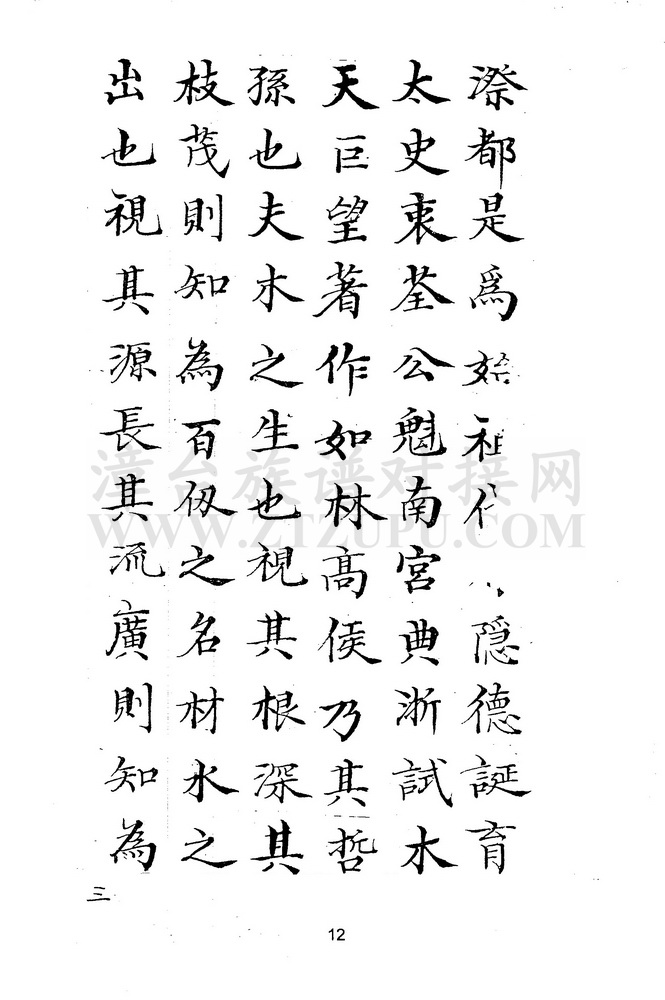 漈都是爲始祖代隠德誕育
太史東荃公魁南宮典浙試木
天巨望著作如林高侯乃其哲
孫也夫木之生也視其根深其
枝茂則知為百仭之名材水之
出也視其源長其流廣則知為
三
12
漳台族谱对接网
WWW.ZTZUPU.COM